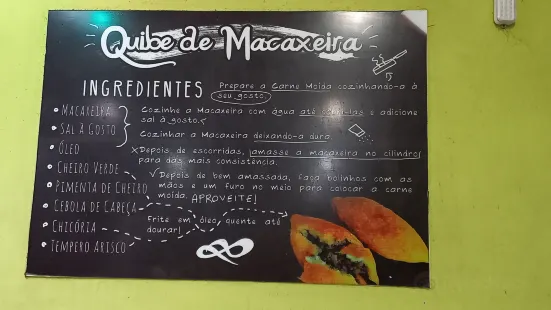 Quibe de Macaxeira
INGREDIENTES
• MACAXEIRA
• SAL À GOSTO
• ÓLEO
• CHEIRO VERDE
• PIMENTA DE CHEIRO
• CEBOLA DE CABEÇA
• CHICÓRIA
• TEMPERO ARISCO
Prepare a Carne Moída cozinhando-à à
seu gosto.
Cozinhe a Macaxeira com água até cobri-las e adicione
sal à gosto.
Cozinhar a Macaxeira deixando-a dura.
Depois de escorridas, jamasse a macaxeira no cilindro
para das mais consistência.
Depois de bem amassada, faça bolinhos com as
mãos e um furo no meio para colocar a carne
moída. APROVEITE!
Frite em óleo quente até
dourar!